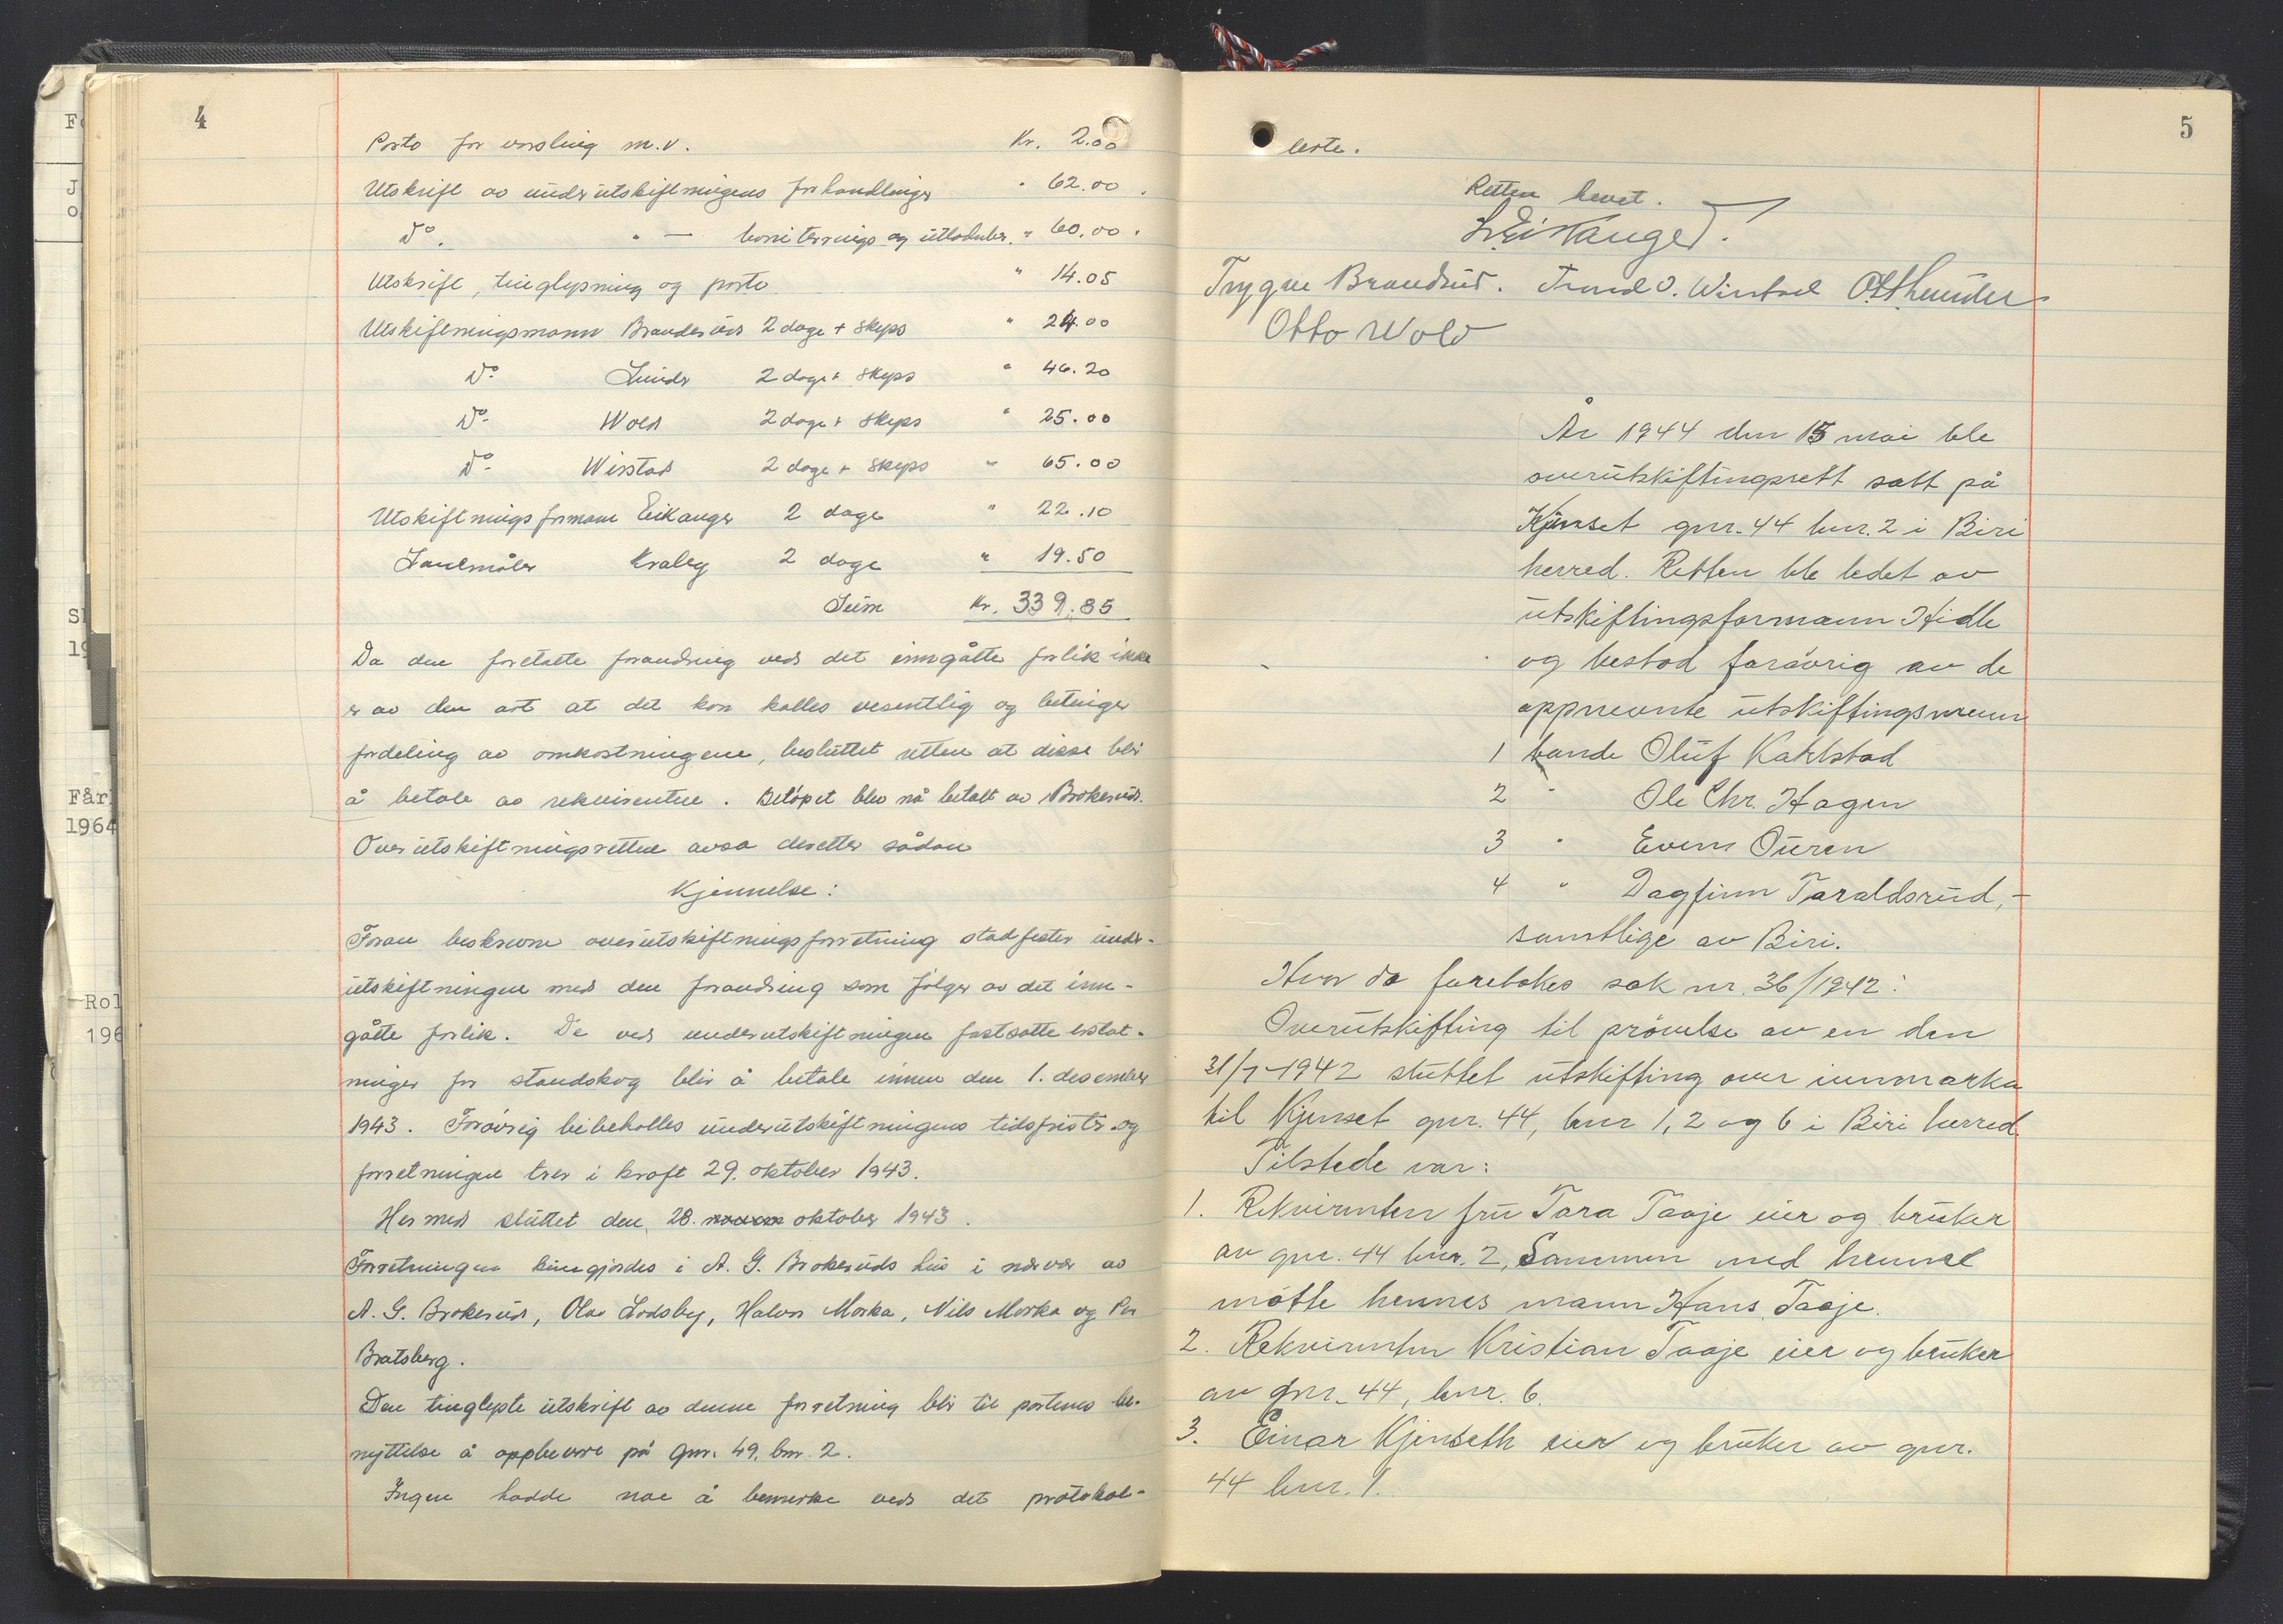 4
Porto for varsling m.v. Kr. 2.00
Utskrift av underutskiftningens forhandlinger " 62.00.
Do. " — boniterings og utlodnber. " 60.00.
Utskrift, tinglysning og porto " 14.05
Utskiftningsmann Brandsrud 2 dage + skyss " 24.00
Do Lunder 2 dage + skyss " 46.20
Do Wold 2 dage + skyss " 25.00
Do Wirstad 2 dage + skyss " 65.00
Utskiftningsformann Eikanger 2 dage " 22.10
Landmåler Kraby 2 dage " 19.50
Sum Kr. 339.85
Da den foretatte forandring ved det inngåtte forlik ikke
er av den art at det kan kalles vesentlig og betinger
fordeling av omkostningene, besluttet retten at disse blir
å betale av rekvirentene. Beløpet blev nå betalt av Brokerud.
Overutskiftningsretten avsa deretter sådan
Kjennelse:
Foran beskrevne overutskiftningsforretning stadfester under-
utskiftningen med den forandring som følger av det inn-
gåtte forlik. De ved underutskiftningen fastsatte erstat-
ninger for standskog blir å betale innen den 1. desember
1943. Forøvrig bibeholles underutskiftningens tidsfrister og
forretningen trer i kraft 29. oktober 1943.
Hermed sluttet den 28. oktober 1943.
Forretningen kunngjordes i A. G. Brokeruds hus i nærvær av
A. G. Brokerud, Olav Lodsby, Halvor Morka, Nils Morka og Per
Bratsberg.
Den tinglyste utskrift av denne forretning blir til partenes be-
nyttelse å oppbevare på gnr. 49, bnr. 2.
Ingen hadde noe å bemerke ved det protokol-
5
lerte.
Retten hevet.
L. Eikanger.
Trygve Brandsrud. Trond O. Wirstad O. H. Lunder
Otto Wold
År 1944 den 15 mai ble
overutskiftingsrett satt på
Kjenset gnr. 44 bnr. 2 i Biri
herred. Retten ble ledet av
utskiftingsformann Hidle
og bestod forøvrig av de
oppnevnte utskiftingsmenn
1 bonde Oluf Karlstad
2 " Ole Chr. Hagen
3 " Even Ouren
4 " Dagfinn Taraldsrud,-
samtlige av Biri.
Hvor da forebokes sak nr. 36/1942:
Overutskifting til prøvelse av en den
31/7-1942 sluttet utskifting over innmarka
til Kjenset gnr. 44, bnr 1, 2 og 6 i Biri herred.
Tilstede var:
1. Rekvirenten fru Tora Taaje eier og bruker
av gnr. 44 bnr. 2, Sammen med henne
møtte hennes mann Hans Taaje.
2. Rekvirenten Kristian Taaje eier og bruker
av gnr. 44, bnr. 6.
3. Einar Kjenseth eier og bruker av gnr.
44 bnr. 1.